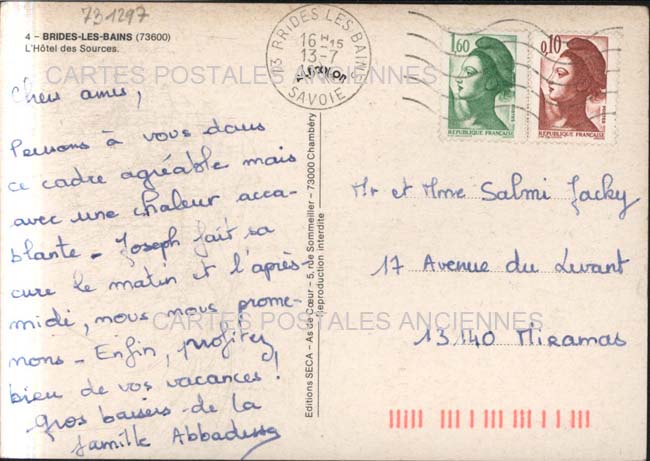 731297
4 - BRIDES-LES-BAINS (73600)
L'Hôtel des Sources.
CARTES POSTALES ANCIENNES
73 BRIDES LES BAINS
16 H 15
13-7
SAVOIE
1,60
POSTES
REPUBLIQUE FRANÇAISE
0,10
POSTES
REPUBLIQUE FRANÇAISE
Chers amis,
Pensons à vous dans
ce cadre agréable mais
avec une chaleur acca-
blante - Joseph fait sa
cure le matin et l'après-
midi, nous nous prome-
nons - Enfin, profitez
bien de vos vacances!
Gros baisers de la
famille
Editions SECA - As de Cœur - 5, rue Sommeiller - 73000 Chambéry
Reproduction interdite
Mr et Mme Salmi Jacky
17 Avenue du Levant
13140 Miramas
CARTES POSTALES ANCIENNES